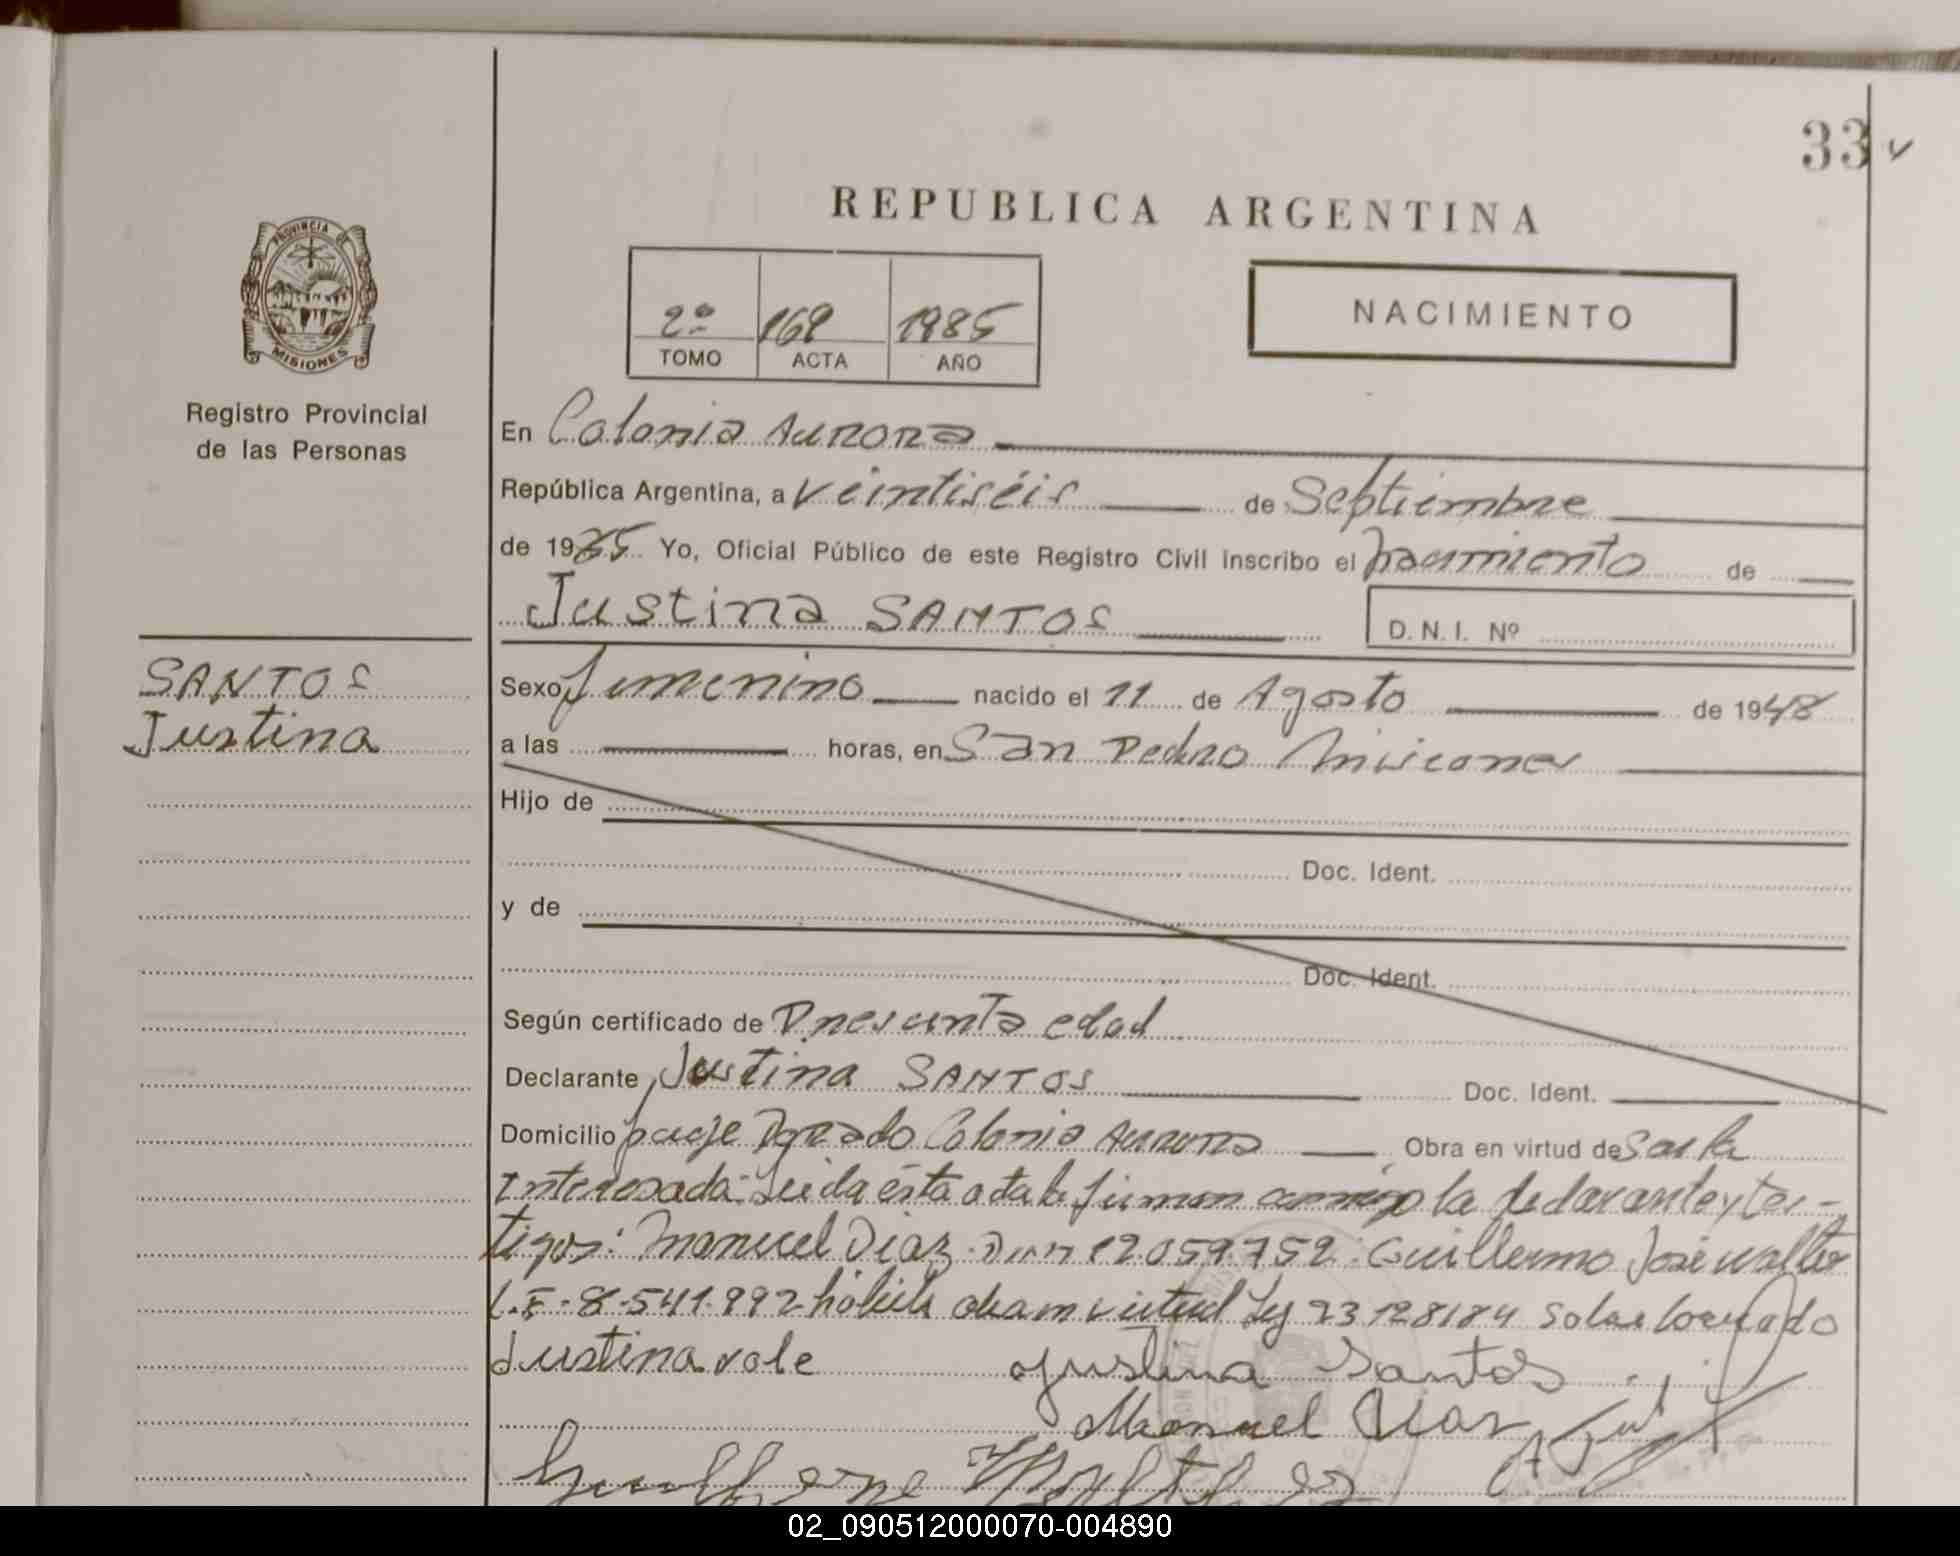 33
REPUBLICA ARGENTINA
PROVINCIA DE
MISIONES
Registro Provincial
de las Personas
2º 169 1985
TOMO ACTA AÑO
NACIMIENTO
En Colonia Aurora
República Argentina, a veintiséis de Septiembre
de 1985 Yo, Oficial Público de este Registro Civil inscribo el nacimiento de
Justina SANTOS D.N.I. Nº
SANTOS
Justina
Sexo femenino nacido el 11 de Agosto de 1948
a las horas, en San Pedro Misiones
Hijo de
Doc. Ident.
y de
Doc. Ident.
Según certificado de Presunta edad
Declarante Justina SANTOS Doc. Ident.
Domicilio paraje Dorado Colonia Aurora Obra en virtud de
Interesada: Leida ésta acta la firman conmigo la declarante y tes-
tigos: Manuel Diaz Dni 12.059.752 Guillermo José Walter
L.E-8.541.992 virtud Ley 23128/84
Justina vale Justina Santos
Manuel Diaz
02_090512000070-004890